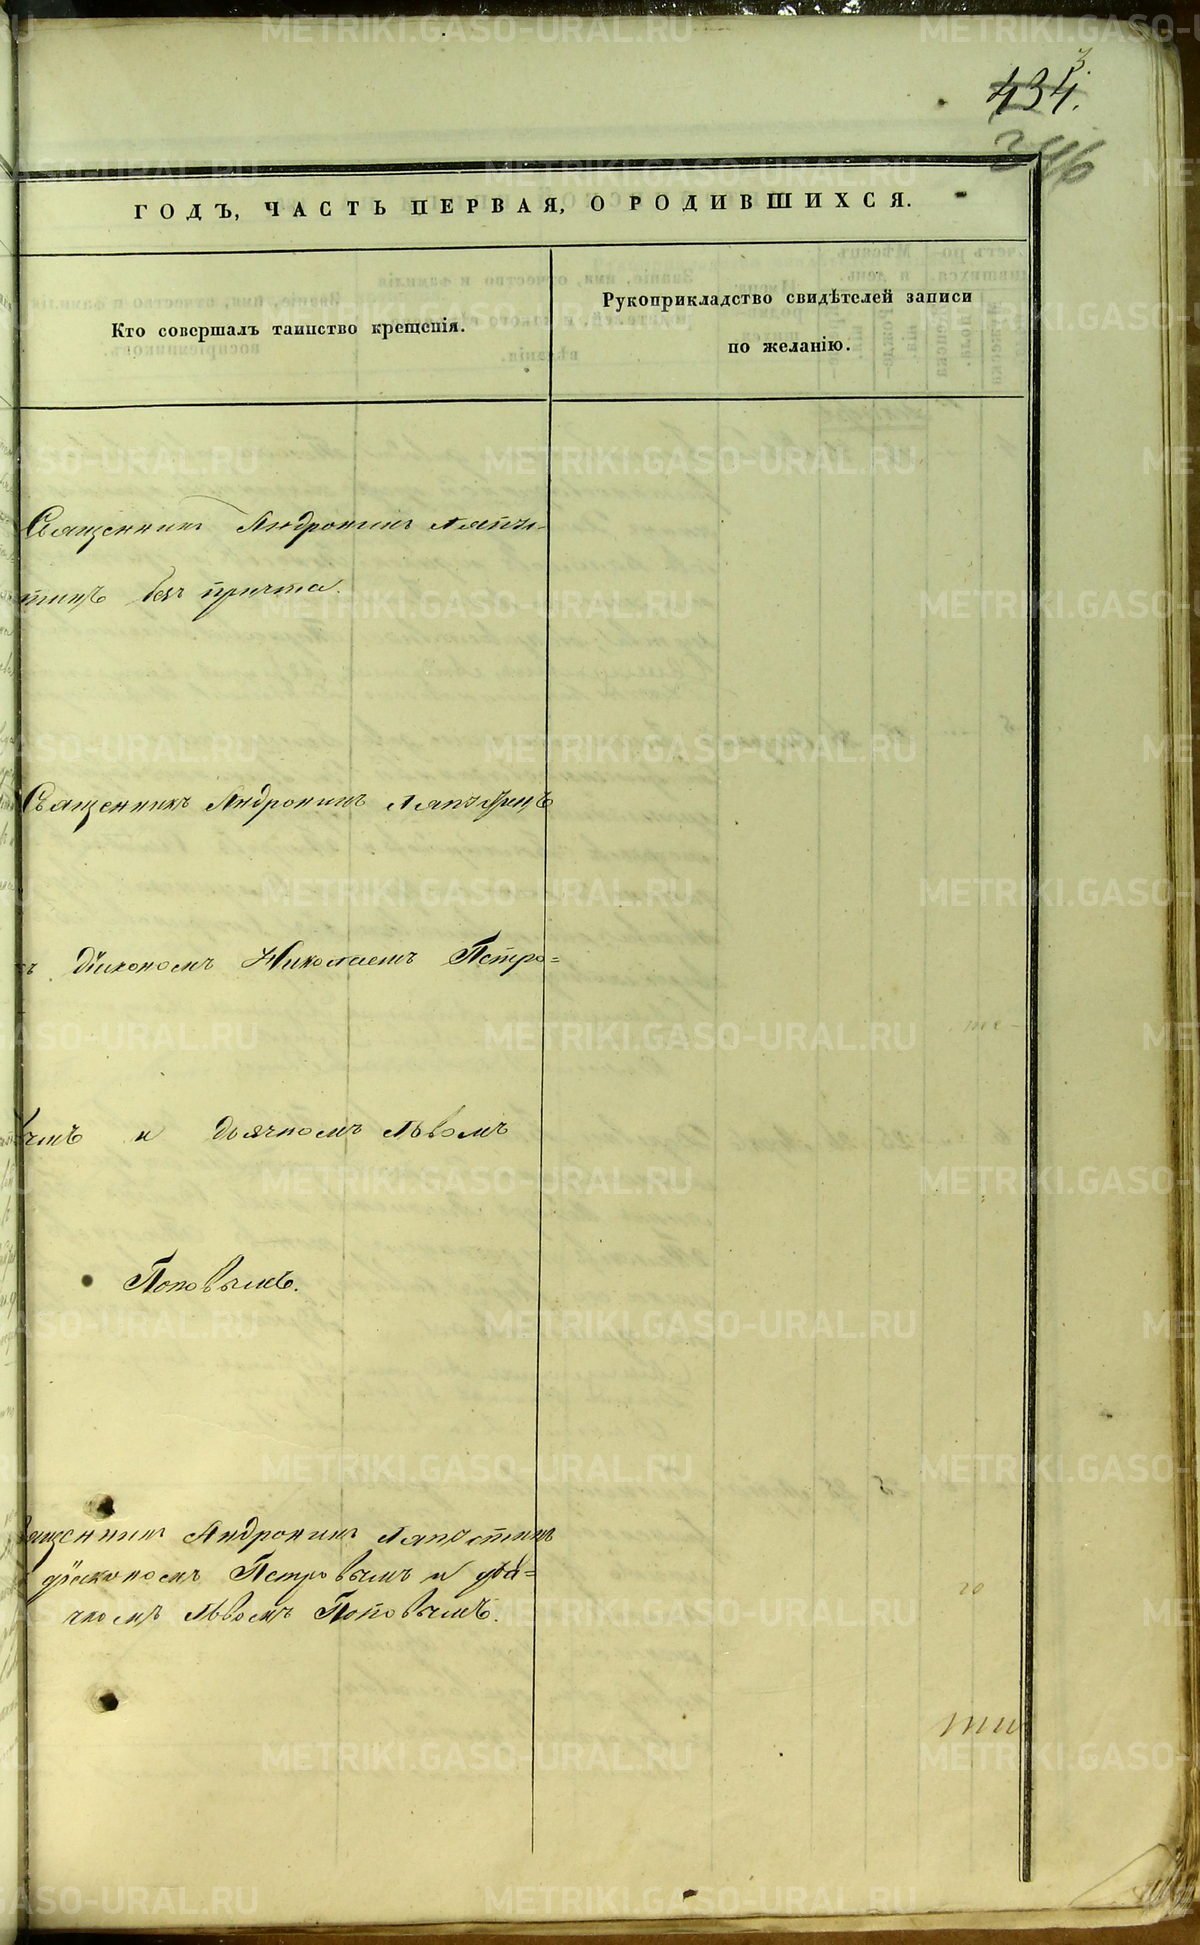 3.
434.
346
ГОДЪ, ЧАСТЬ ПЕРВАЯ, О РОДИВШИХСЯ.
Кто совершалъ таинство крещенія.
Рукоприкладство свидѣтелей записи
по желанію.
Священникъ Андроникъ Ляпу-
стинъ безъ причта.
Священникъ Андроникъ Ляпустинъ
съ діакономъ Николаемъ Петро=
вымъ и дьячкомъ Львомъ
Поповымъ.
Священникъ Андроникъ Ляпустинъ
діакономъ Петровымъ и дья=
чкомъ Львомъ Поповымъ.
METRIKI.GASO-URAL.RU